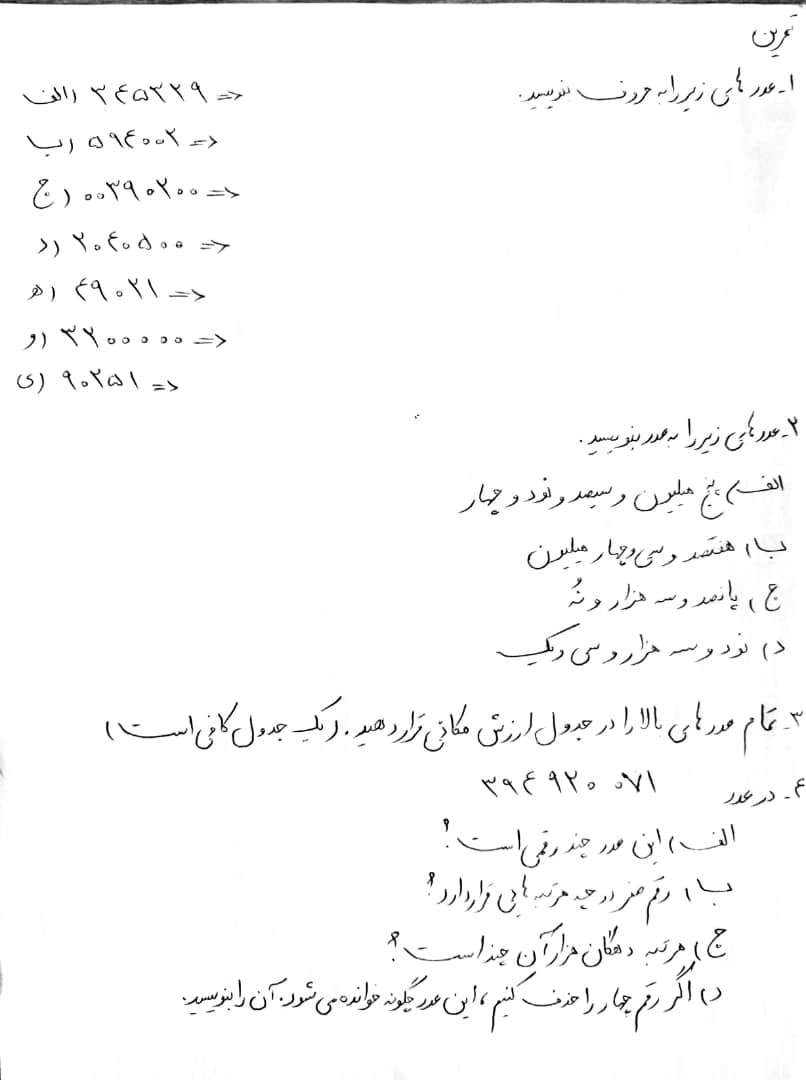 تمرین
۱- عدد های زیر را به حروف بنویسید.
الف) ۳۴۵۲۲۹ <=
ب) ۵۹۴۰۰۲ <=
ج) ۰۰۳۹۰۲۰۰ <=
د) ۲۰۴۰۵۰۰ <=
ه) ۴۹۰۲۱ <=
و) ۳۲۰۰۰۰۰ <=
ی) ۹۰۲۵۱ <=
۲- عدد های زیر را به عدد بنویسید.
الف) پنج میلیون و سیصد و نود و چهار
ب) هفتصد و سی و چهار میلیون
ج) پانصد و سه هزار و نُه
د) نود و سه هزار و سی و یک
۳- تمام عدد های بالا را در جدول ارزش مکانی قرار دهید. (یک جدول کافی است)
۴- در عدد ۳۹۴۹۲۰۰۷۱
الف) این عدد چند رقمی است؟
ب) رقم صفر در چه مرتبه هایی قرار دارد؟
ج) مرتبه دهگان هزار آن چند است؟
د) اگر رقم چهار را حذف کنیم، این عدد چگونه خوانده می شود. آن را بنویسید.